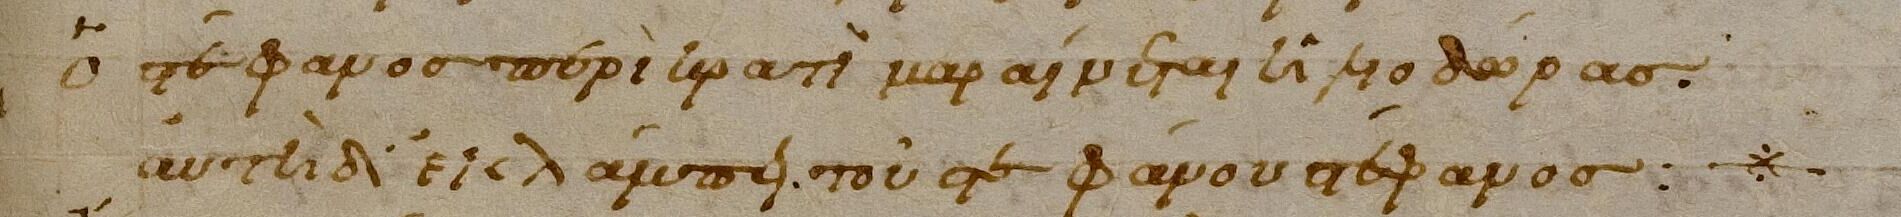 ὁ στέφανος περὶ κρατὶ μαραίνεται ἡλιοδώρας·
αὐτὴ δ' ἐκλάμπει τοῦ στεφάνου στέφανος: ※